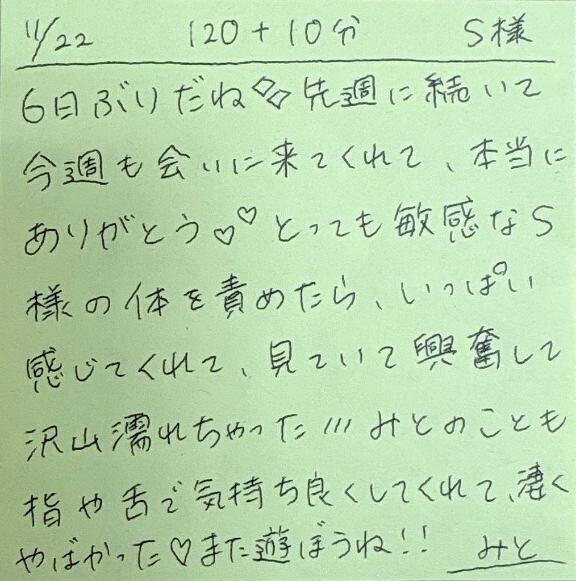 11/22 120+10分 S様
6日ぶりだね◇◇先週に続いて
今週も会いに来てくれて、本当に
ありがとう♡♡とっても敏感なS
様の体を責めたら、いっぱい
感じてくれて、見ていて興奮して
沢山濡れちゃった///みとのことも
指や舌で気持ち良くしてくれて、凄く
やばかった♡また遊ぼうね!! みと